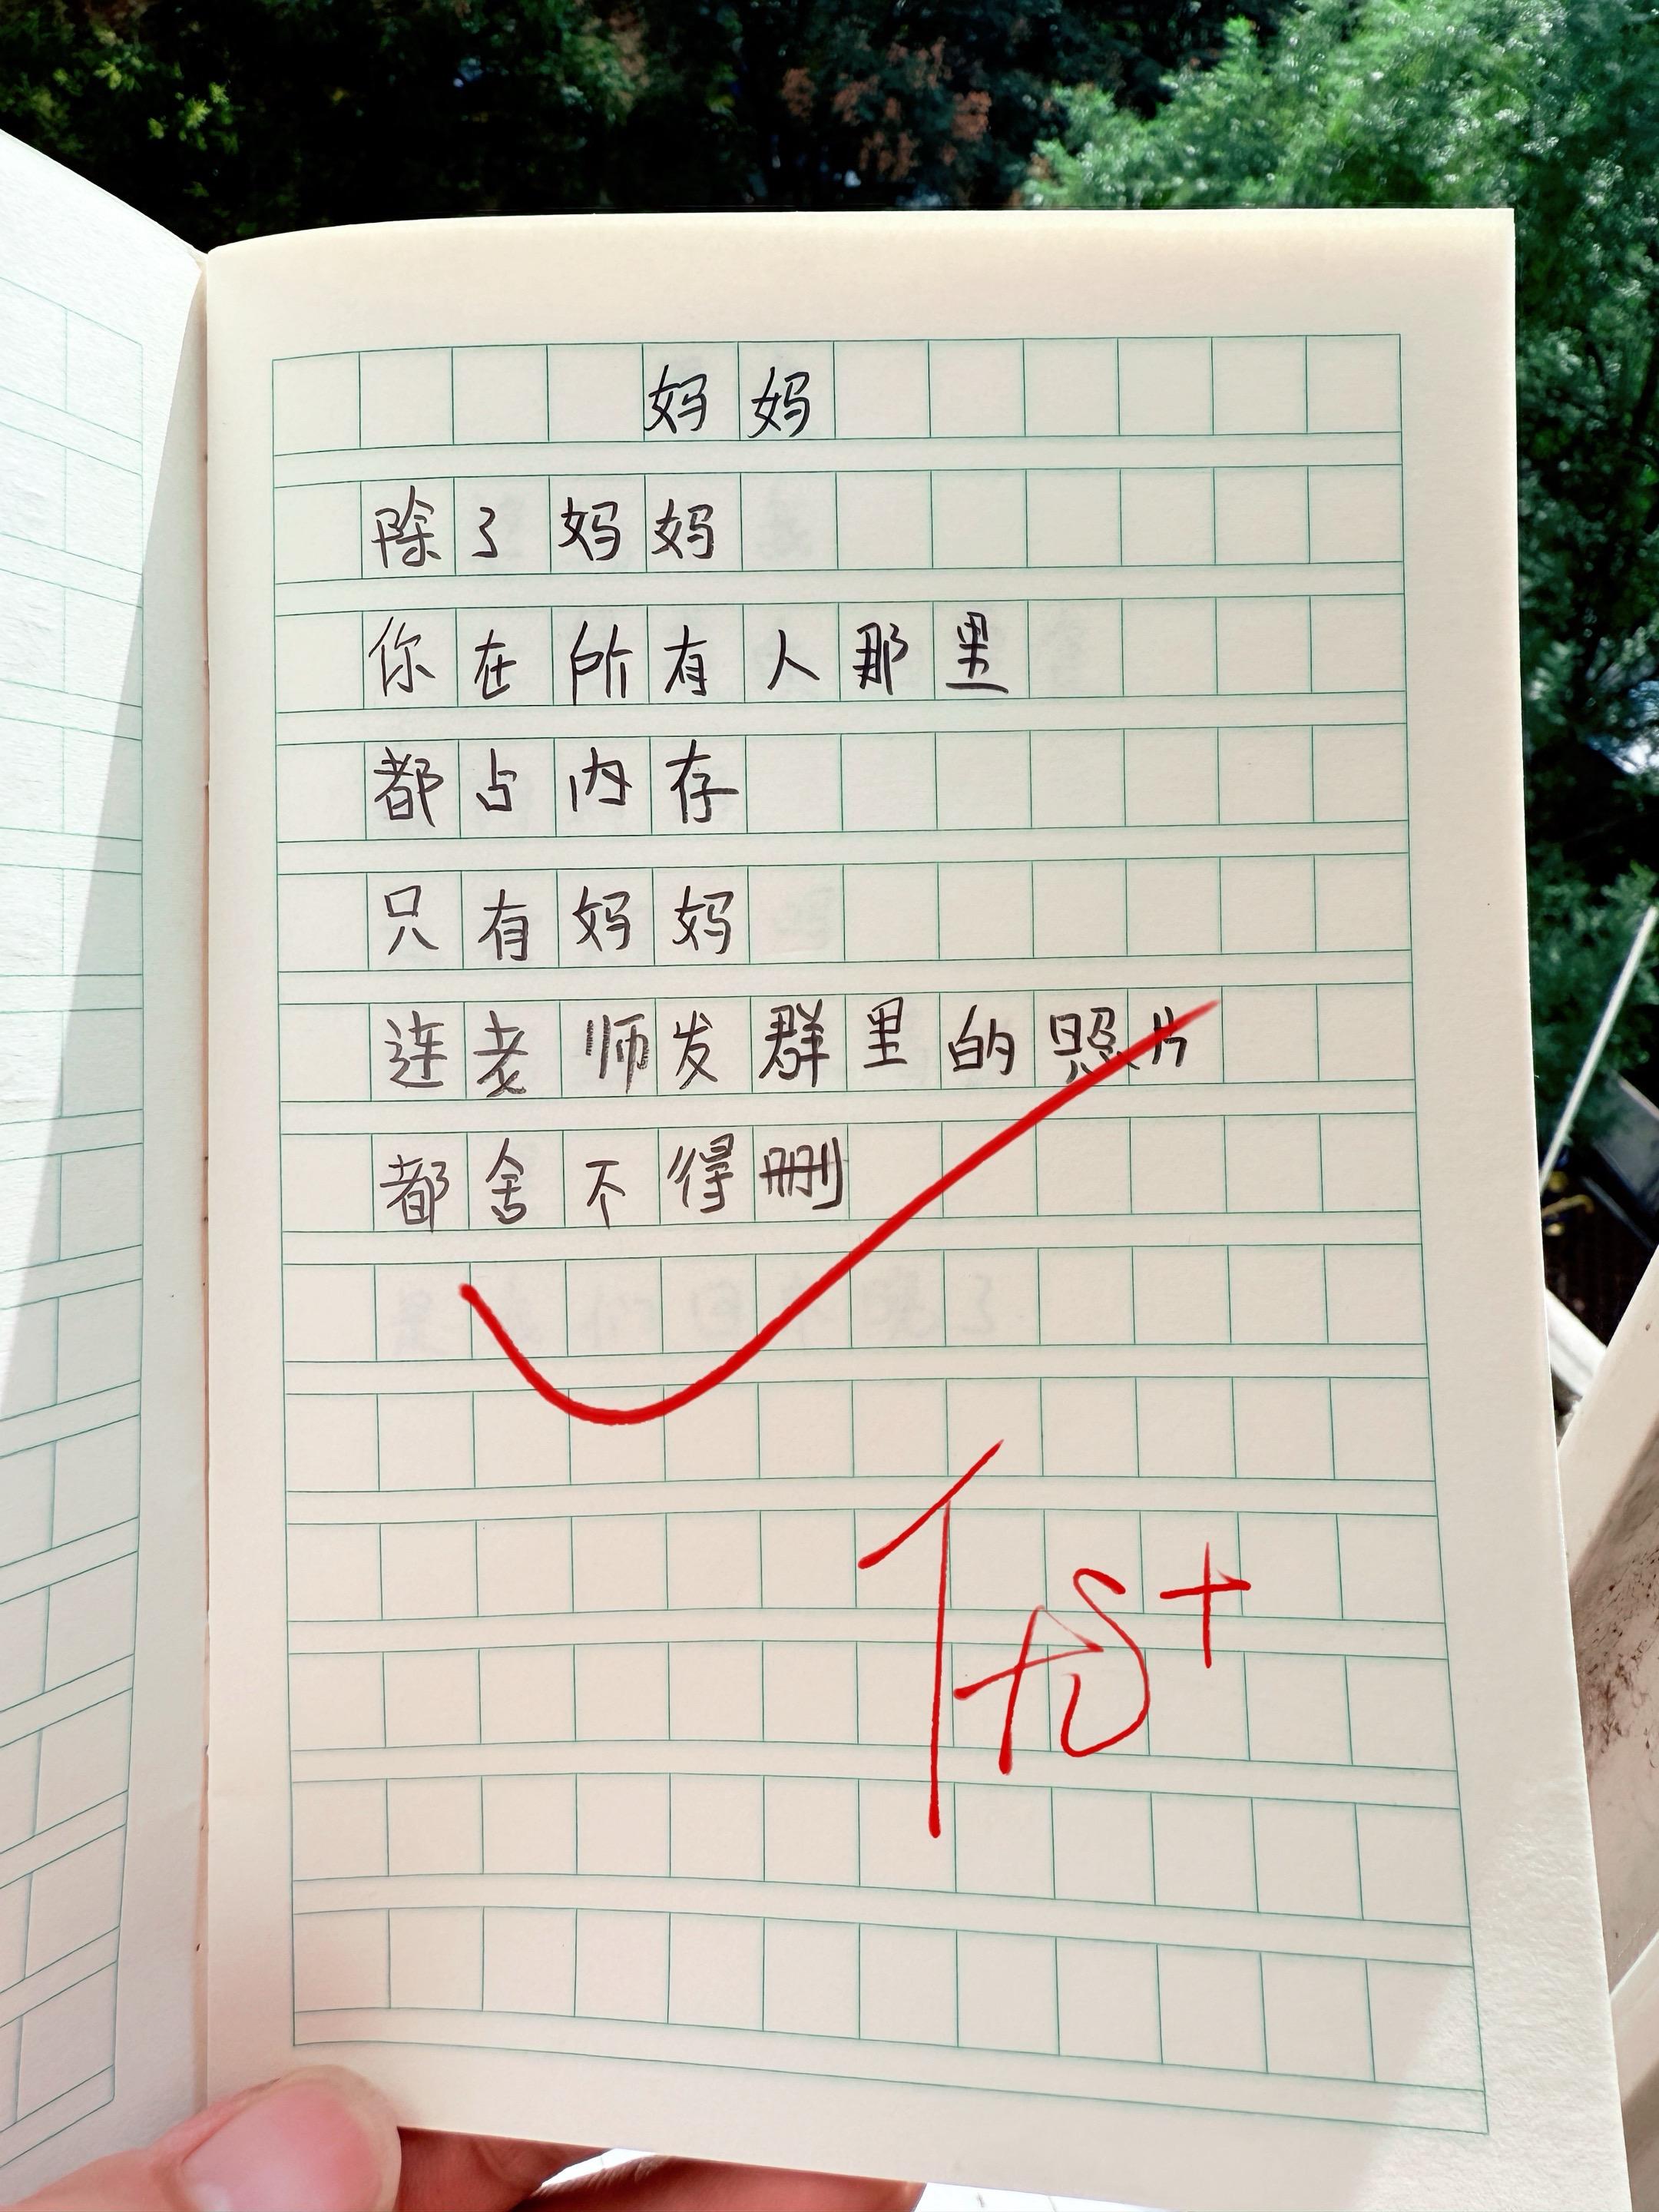 妈妈
除了妈妈
你在所有人那里
都占内存
只有妈妈
连老师发群里的照片
都舍不得删